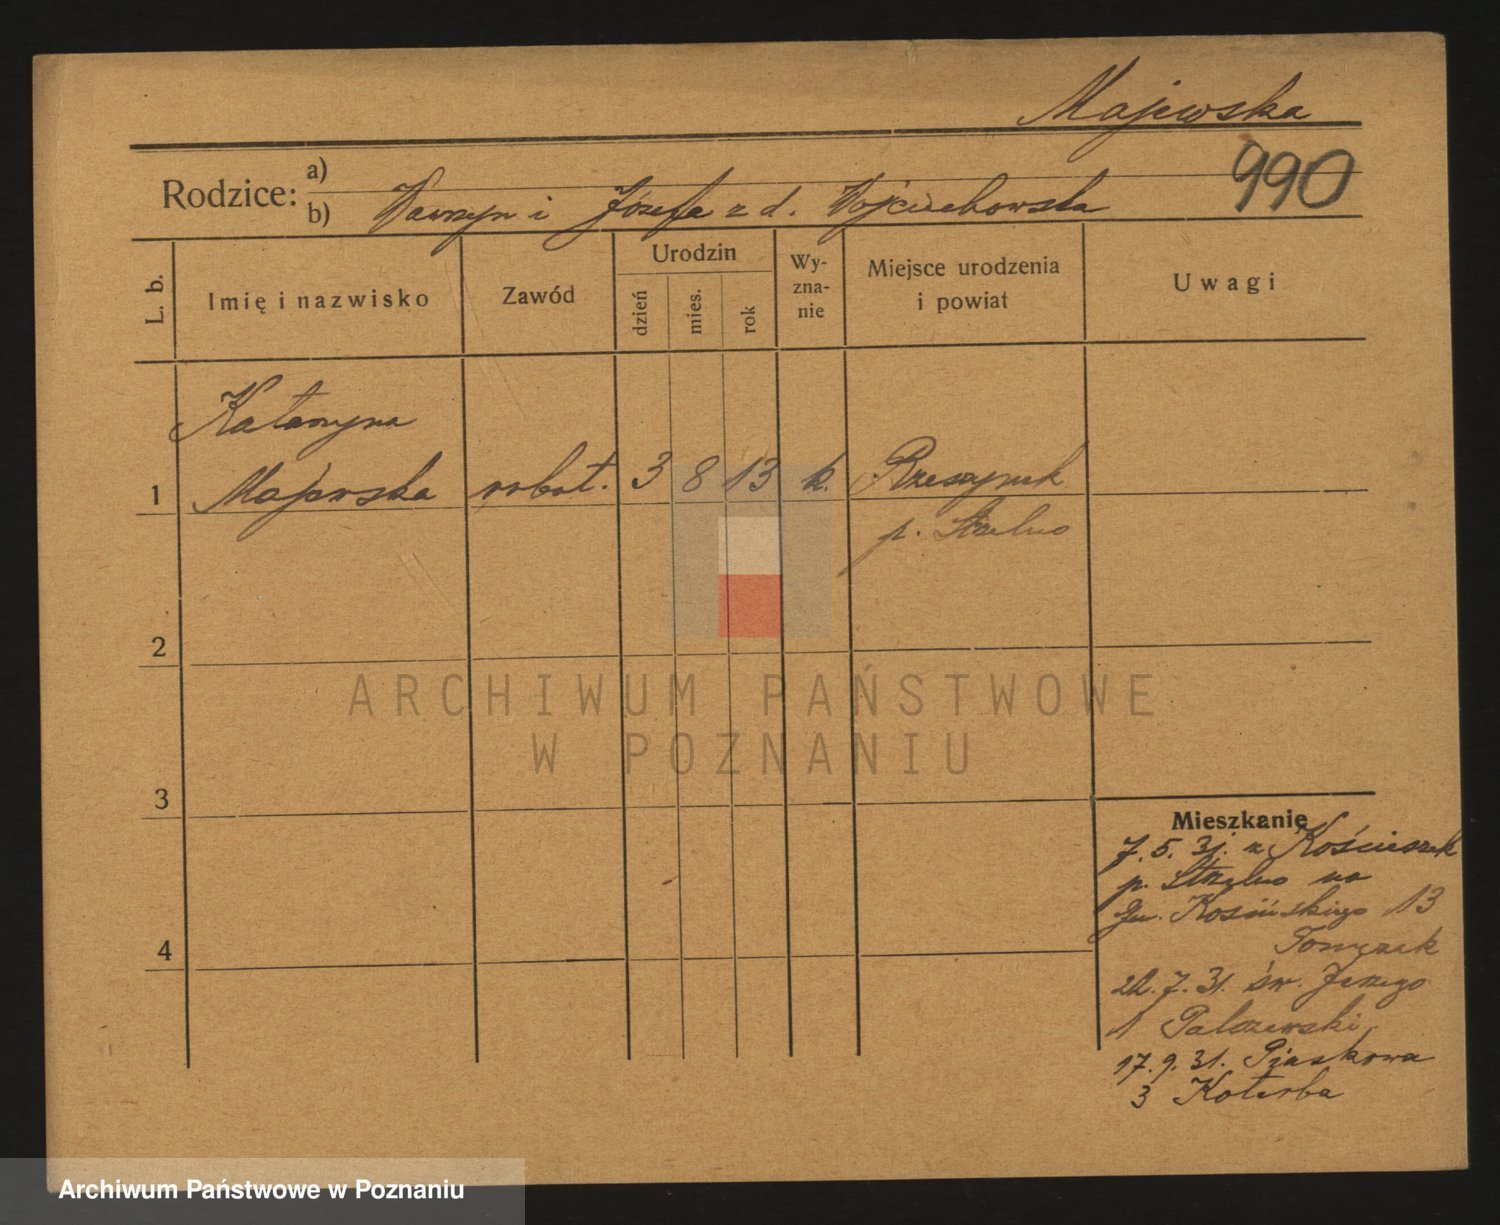 Majewska
990
Rodzice: a)
b) Wawrzyn i Józefa z d. Wojciechowska
L. b.
Imię i nazwisko
Zawód
Urodzin
dzień
mies.
rok
Wy-
zna-
nie
Miejsce urodzenia
i powiat
Uwagi
Katarzyna
1 Majewska robot. 3 8 13 k. Rzeszynek
p. Strzelno
2
3
4
Mieszkanie
7. 5. 31. z Kościeszek
p. Strzelno na
Gen. Kosińskiego 13
Tomczak
22. 7. 31. św. Jerzego
1 Palczewski
17. 9. 31. Piaskowa
3 Koterba
ARCHIWUM PAŃSTWOWE
W POZNANIU
Archiwum Państwowe w Poznaniu